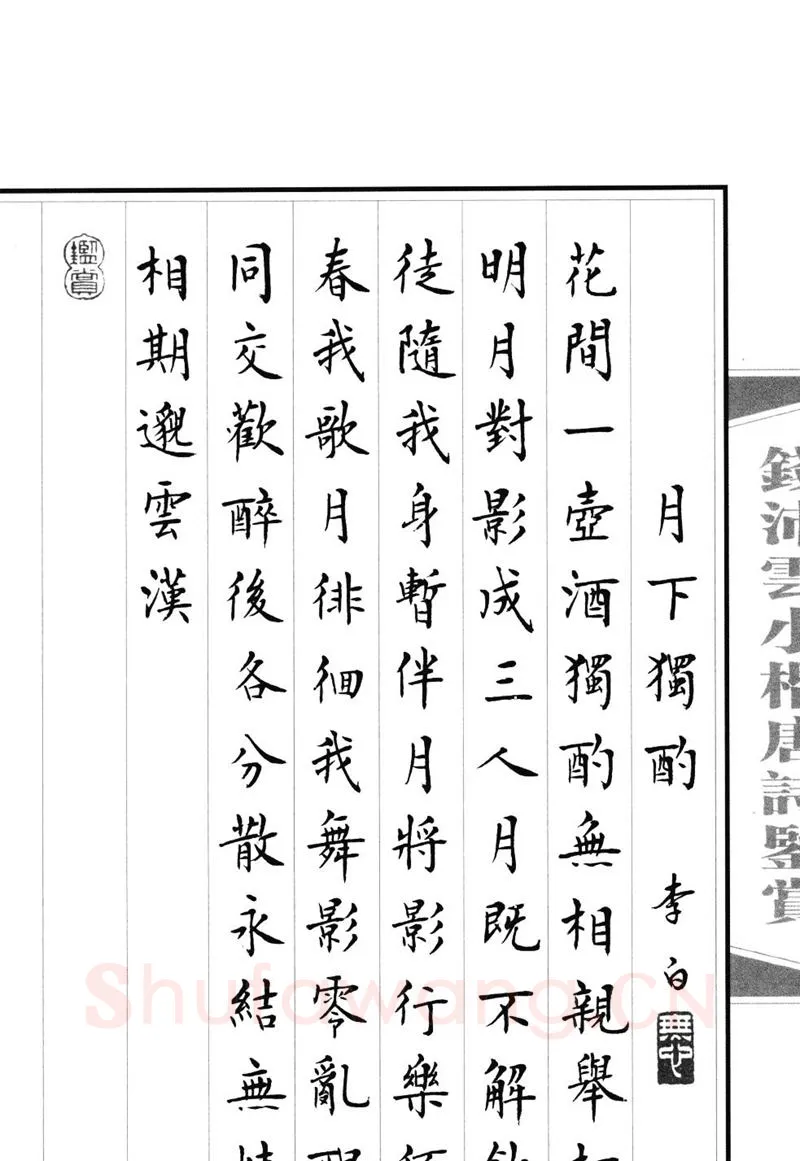 錢沛雲小楷唐詩鑒賞
月下獨酌 李白
花間一壺酒獨酌無相親舉
明月對影成三人月既不解
徒隨我身暫伴月將影行樂
春我歌月徘徊我舞影零亂
同交歡醉後各分散永結無
相期邈雲漢
鑑賞
Shufawang.CN